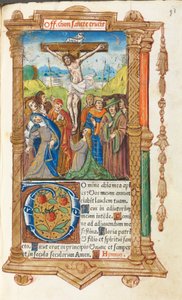 Off'cium sancte crucis
Omine labia mea ape
ries. Et os meum annun
ciabit laudem tuam.
Deus in adiutorium
meum intende.
Domine
ad adiuuandum me
Gloria patri
et filio et spiritui san
cto. Sicut erat in principio et nunc et semper
et in secula seculorum Amen. Hymnus.